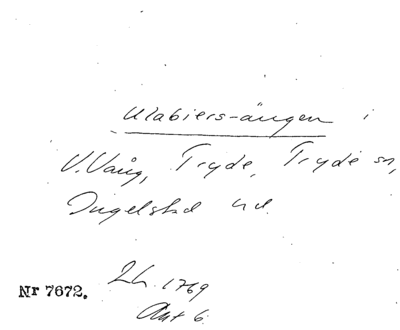 Ulabiers-ängen i
V. Vång, Tryde, Tryde sn,
Ingelstad hd.
Lh. 1769
Akt 6
Nr 7672.